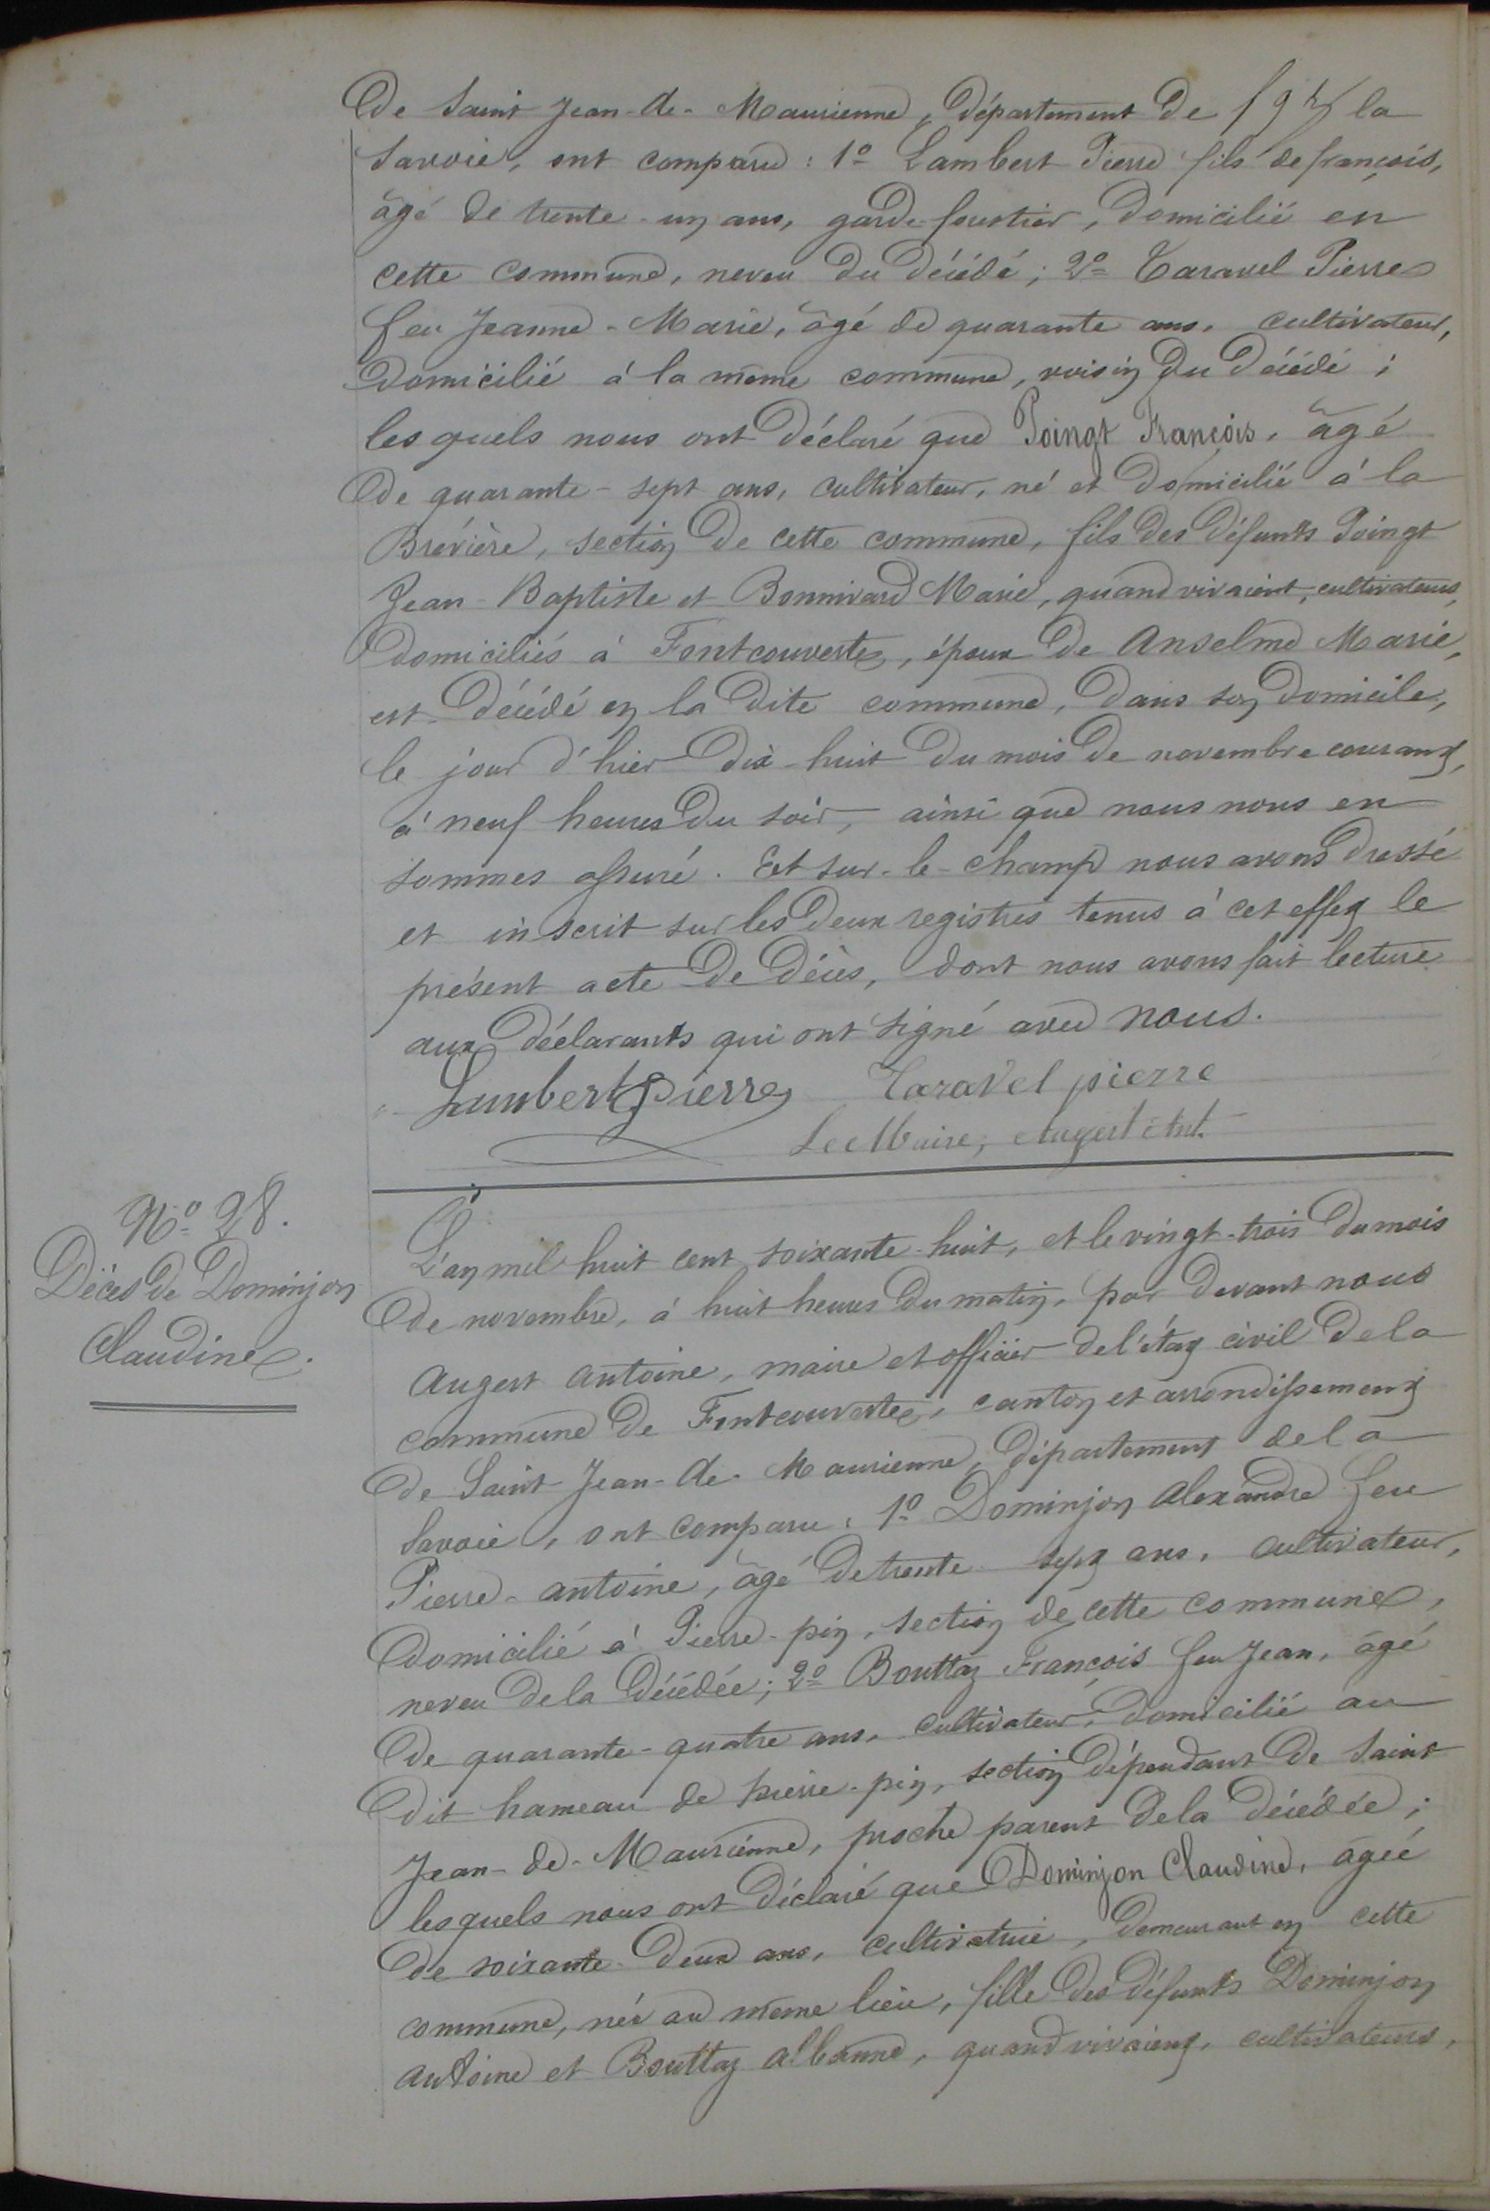 de Saint Jean-de-Maurienne, département de la
Savoie, ont comparu : 1º Lambert Pierre fils de françois,
âgé de trente-un ans, garde-forestier, domicilié en
cette commune, neveu du décédé ; 2º Taravel Pierre
feu Jeanne-Marie, âgé de quarante ans, cultivateur,
domicilié à la même commune, voisin du décédé ;
lesquels nous ont déclaré que Poingt François, âgé
de quarante-sept ans, cultivateur, né et domicilié à la
Brévière, section de cette commune, fils des défunts Poingt
Jean-Baptiste et Bonnivard Marie, quand vivaient, cultivateurs,
domiciliés à Fontcouverte, époux de Anselme Marie,
est décédé en la dite commune, dans son domicile,
le jour d'hier dix-huit du mois de novembre courant,
à neuf heures du soir, ainsi que nous nous en
sommes assuré. Et sur-le-champ nous avons dressé
et inscrit sur les deux registres tenus à cet effet le
présent acte de décès, dont nous avons fait lecture
aux déclarants qui ont signé avec nous.
Lambert Pierre Taravel pierre
Le Maire, Augert Ant.
Nº 28.
Décès de Dominjon
Claudine.
L'an mil huit cent soixante-huit, et le vingt-trois du mois
de novembre, à huit heures du matin, par devant nous
Augert Antoine, maire et officier de l'état civil de la
commune de Fontcouverte, canton et arrondissement
de Saint-Jean-de-Maurienne, département de la
Savoie, ont comparu : 1º Dominjon Alexandre feu
Pierre-Antoine, âgé de trente-sept ans, cultivateur,
domicilié à Pierre-pin, section de cette commune,
neveu de la décédée ; 2º Bouttaz François feu Jean, âgé
de quarante-quatre ans, cultivateur, domicilié au
dit hameau de pierre-pin, section dépendant de Saint
Jean-de-Maurienne, proche parent de la décédée ;
lesquels nous ont déclaré que Dominjon Claudine, âgée
de soixante-deux ans, cultivatrice, demeurant en cette
commune, née au même lieu, fille des défunts Dominjon
Antoine et Bouttaz Albanne, quand vivaient, cultivateurs,